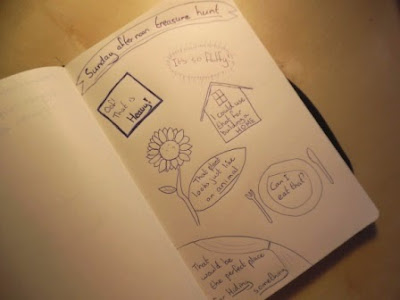 Sunday afternoon treasure hunt
It's so fluffy!
Ooh!
That is
Heavy!
I could use
that for
building a
HOME
That plant
looks just like
an animal
Can I
eat that?
That
would be
the perfect place
for Hiding
something